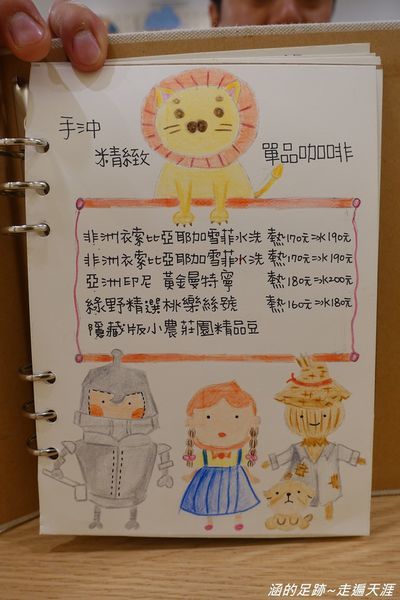 手沖
精緻
單品咖啡
非洲衣索比亞耶加雪菲水洗 熱170元=冰190元
非洲衣索比亞耶加雪菲水洗 熱170元=冰190元
亞洲印尼 黃金曼特寧 熱180元=冰200元
綠野精選桃樂絲號 熱160元=冰180元
隱藏版小農莊園精品豆
涵的足跡~走遍天涯